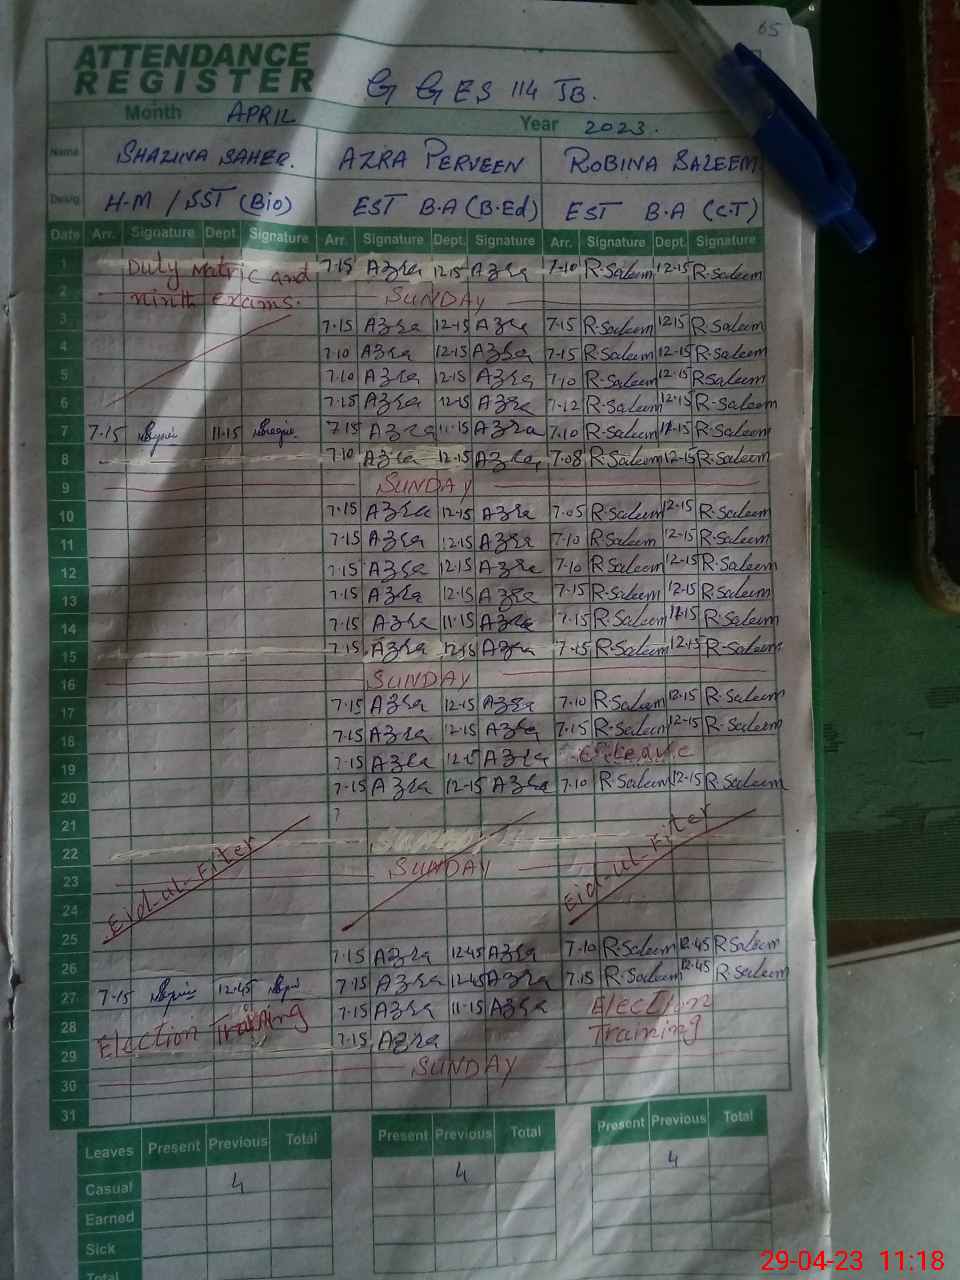 65
ATTENDANCE
REGISTER
G GES 114 JB.
Month APRIL Year 2023.
Name SHAZINA SAHER. AZRA PERVEEN ROBINA SALEEM
Desig H.M / SST (Bio) EST B.A (B.Ed) EST B.A (C.T)
Date Arr. Signature Dept. Signature Arr. Signature Dept. Signature Arr. Signature Dept. Signature
1 Duty Matric and 7-15 Azra 12-15 Azra 7-10 R.Saleem 12-15 R.Saleem
2 ninth exams. SUNDAY
3 7-15 Azra 12-15 Azra 7-15 R.Saleem 12-15 R.Saleem
4 7-10 Azra 12-15 Azra 7-15 R.Saleem 12-15 R.Saleem
5 7-10 Azra 12-15 Azra 7-10 R.Saleem 12-15 R.Saleem
6 7-15 Azra 12-15 Azra 7-12 R.Saleem 12-15 R.Saleem
7 7-15 11-15 7-15 Azra 11-15 Azra 7-10 R.Saleem 11-15 R.Saleem
8 7-10 Azra 12-15 Azra 7-08 R.Saleem 12-15 R.Saleem
9 SUNDAY
10 7-15 Azra 12-15 Azra 7-05 R.Saleem 12-15 R.Saleem
11 7-15 Azra 12-15 Azra 7-10 R.Saleem 12-15 R.Saleem
12 7-15 Azra 12-15 Azra 7-10 R.Saleem 12-15 R.Saleem
13 7-15 Azra 12-15 Azra 7-15 R.Saleem 12-15 R.Saleem
14 7-15 Azra 11-15 Azra 7-15 R.Saleem 11-15 R.Saleem
15 7-15 Azra 12-15 Azra 7-15 R.Saleem 12-15 R.Saleem
16 SUNDAY
17 7-15 Azra 12-15 Azra 7-10 R.Saleem 12-15 R.Saleem
18 7-15 Azra 12-15 Azra 7-15 R.Saleem 12-15 R.Saleem
19 7-15 Azra 12-15 Azra Leave
20 7-15 Azra 12-15 Azra 7-10 R.Saleem 12-15 R.Saleem
21
22 Eid-ul-Fiter Eid-ul-Fiter
23 SUNDAY
24
25
26 7-15 Azra 12-45 Azra 7-10 R.Saleem 12-45 R.Saleem
27 7-15 12-45 7-15 Azra 12-45 Azra 7-15 R.Saleem 12-45 R.Saleem
28 Election Training 7-15 Azra 11-15 Azra Election
29 7-15 Azra Training
30 SUNDAY
31
Leaves Present Previous Total Present Previous Total Present Previous Total
Casual 4 4 4
Earned
Sick
Total
29-04-23 11:18